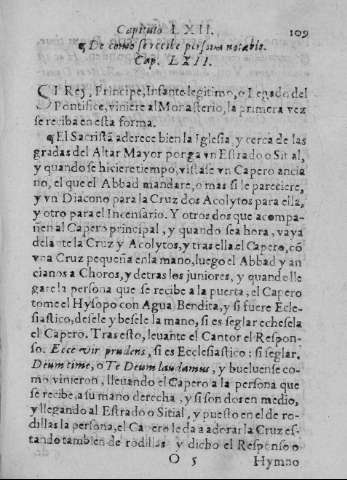 Capitulo LXII. 109
¶ De como se recibe persona notable.
Cap. LXII.
SI Rey, Principe, Infante legitimo, o Legado del
Pontifice, viniere al Monasterio, la primera vez
se reciba en esta forma.
¶ El Sacristã aderece bien la Iglesia, y cerca de las
gradas del Altar Mayor ponga vn Estrado o Sitial,
y quando se hiciere tiempo, vistase vn Capero ancia
no, el que el Abbad mandare, o mas si le pareciere,
y vn Diacono para la Cruz dos Acolytos para ella,
y otro para el Incensario. Y otros dos que acompa-
ñen al Capero principal, y quando sea hora, vaya
delãte la Cruz y Acolytos, y tras ella el Capero, cõ
vna Cruz pequeña en la mano, luego el Abbad y an
cianos a Choros, y detras los juniores, y quando lle
gare la persona que se recibe a la puerta, el Capero
tome el Hysopo con Agua Bendita, y si fuere Ecle-
siastico, desele y besele la mano, si es seglar echesela
el Capero. Tras esto, leuante el Cantor el Respon-
so. Ecce vir prudens, si es Ecclesiastico: si seglar,
Deum time, o Te Deum laudamus, y bueluense co-
mo vinieron, lleuando el Capero a la persona que
se recibe, a su mano derecha, y si son dos en medio,
y llegando al Estrado o Sitial, y puesto en el de ro-
dillas la persona, el Capero le da a adorar la Cruz es-
tando tambien de rodillas y dicho el Responso o
O 5 Hymno